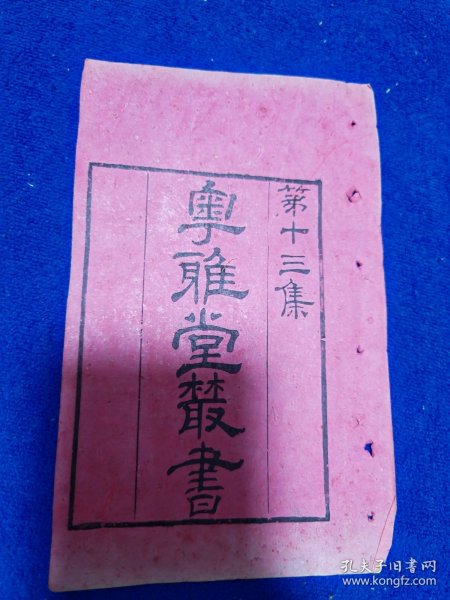 第十三集
粤雅堂叢書
孔夫子旧书网
www.kongfz.com